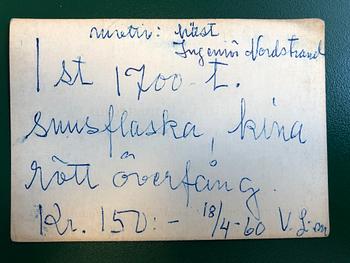 motiv: häst
Ingeniör Nordstrand
1 st 1700-t.
snusflaska, kina
rött överfång.
Kr. 150:- 18/4-60 V. L-m